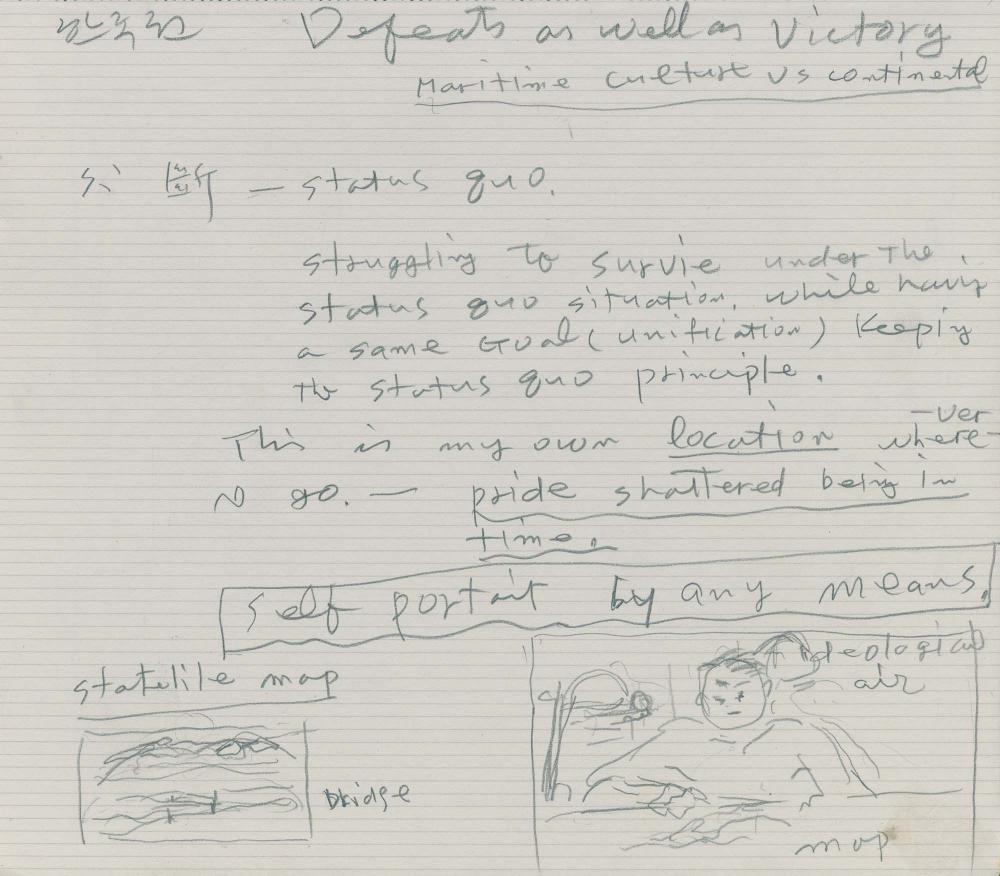 한국전 Defeats as well as Victory
Maritime culture vs continental
分 斷 — status quo.
struggling to survie under the
status quo situation, while havig
a same Goal (unification) Keepig
the status quo principle.
This is my own location where-
-ver
N go. — pride shattered being in
time.
self portait by any means.
statelile map
ideological
air
bridge
map